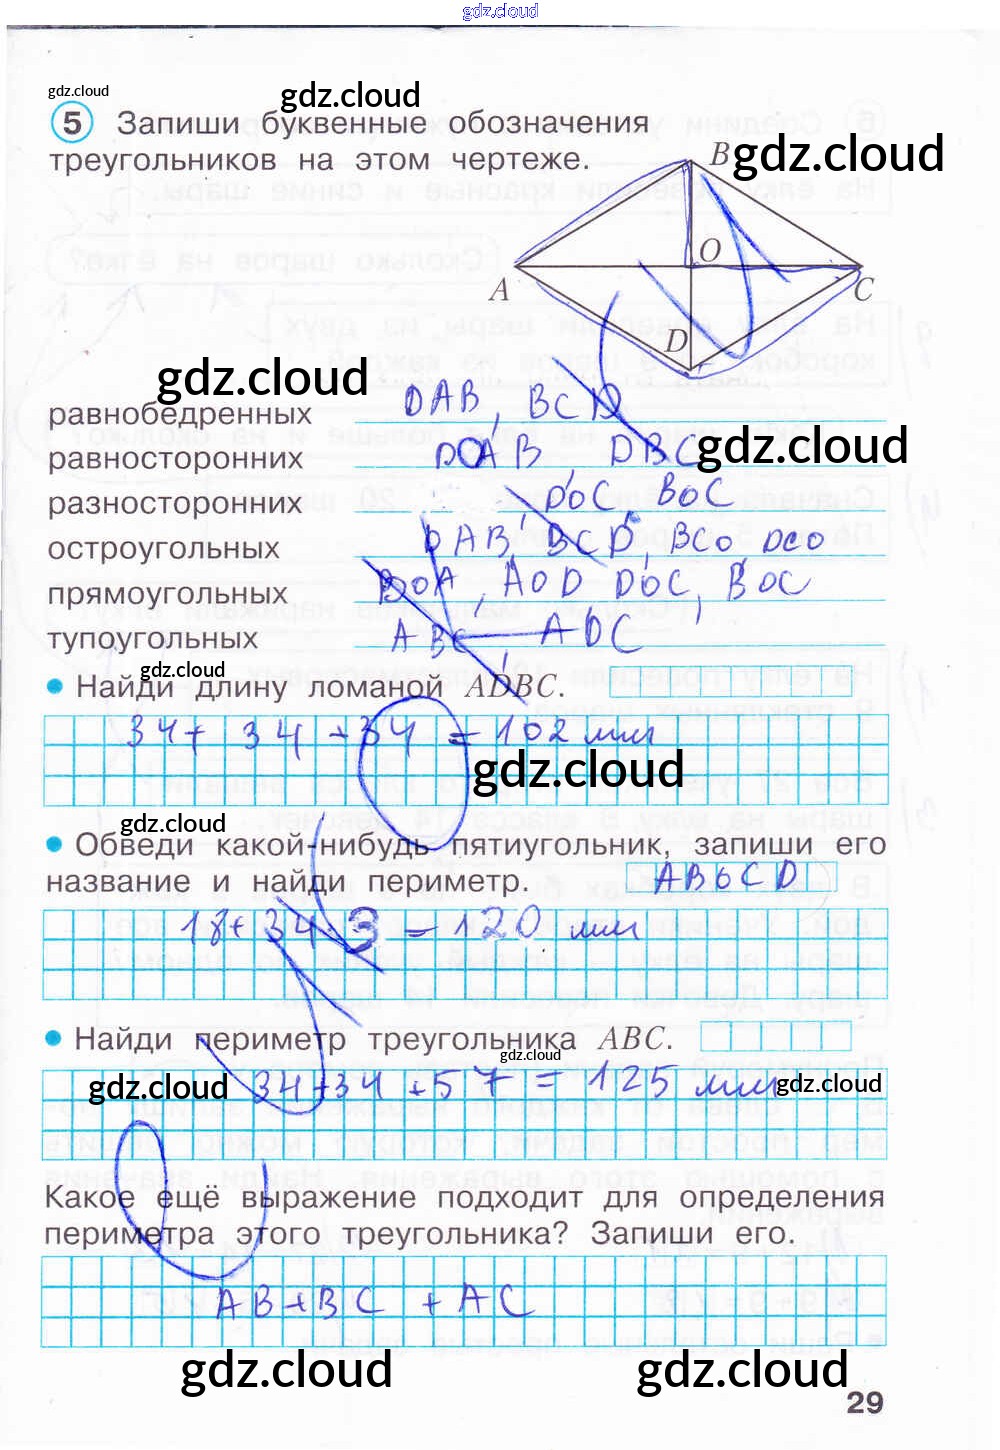 gdz.cloud
gdz.cloud
gdz.cloud
5 Запиши буквенные обозначения
треугольников на этом чертеже.
B gdz.cloud
O
A C
D
gdz.cloud
равнобедренных DAB, BCD
равносторонних DOAB, DBC gdz.cloud
разносторонних DOC BOC
остроугольных DAB, BCD, BCO DCO
прямоугольных BOA, AOD DOC, BOC
тупоугольных ABC, ADC
gdz.cloud
• Найди длину ломаной ADBC.
34+ 34 +34 = 102 мм
gdz.cloud
gdz.cloud
• Обведи какой-нибудь пятиугольник, запиши его
название и найди периметр. ABOCD
18+ 34·3 = 120 мм
• Найди периметр треугольника ABC.
gdz.cloud
gdz.cloud 34+34+57 = 125 мм gdz.cloud
Какое ещё выражение подходит для определения
периметра этого треугольника? Запиши его.
AB+BC +AC
gdz.cloud gdz.cloud
29